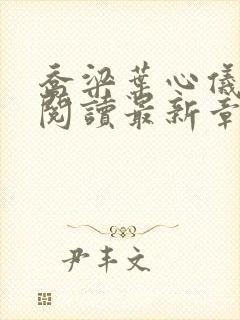 乔梁葉心儀
閱讀最新章
尹丰文